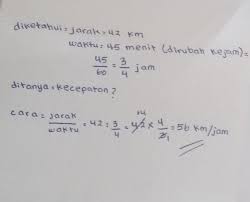 diketahui = jarak = 42 km
waktu = 45 menit (dirubah kejam) =
45/60 = 3/4 jam
ditanya = kecepatan ?
cara = jarak/waktu = 42 : 3/4 = 14 42 x 4/3 1 = 56 km/jam